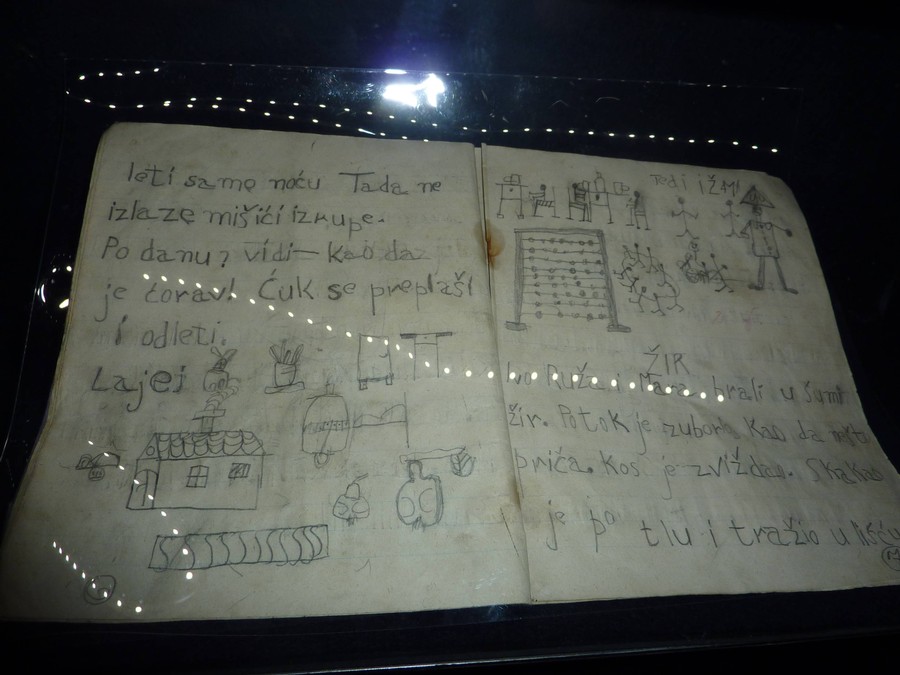 leti samo noću Tada ne
izlaze mišići iz rupe.
Po danu? vidi— kao da
je ćorav! Ćuk se preplaši
i odleti.
Lajej
ŽIR
Ivo Ruža i Mara brali u šumi
žir. Potok je zuborio kao da
priča. Kos je zviždao. Skakao
je po tlu i tražio u lišću